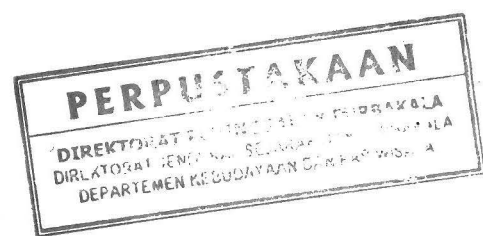 PERPUSTAKAAN
DIREKTORAT PURBAKALA
DIREKTORAT JENDERAL SEJARAH PURBAKALA
DEPARTEMEN KEBUDAYAAN DAN PARIWISATA